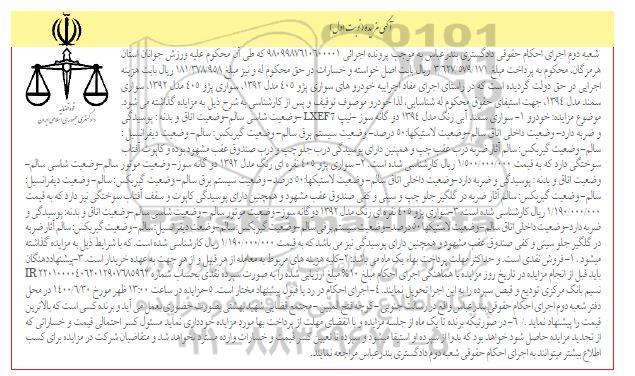 آگهی مزایده (نوبت اول)
قوه قضائیه
دادگستری جمهوری اسلامی ایران
شعبه دوم اجرای احکام حقوقی دادگستری بندرعباس به موجب پرونده اجرائی ۹۸۰۹۹۸۷۶۱۰۶۰۰۰۰۱ که طی آن محکوم علیه ورزش جوانان استان
هرمزگان، محکوم به پرداخت مبلغ ریال بابت اصل خواسته و خسارات در حق محکوم له و نیز مبلغ ۱۸۱/۳۷۸/۹۵۸ ریال بابت هزینه
اجرایی در حق دولت گردیده است که در راستای اجرای مفاد اجراییه خودرو های سواری پژو ۴۰۵ مدل ۱۳۹۲، سواری پژو ۴۰۵ مدل ۱۳۹۲، سواری
سمند مدل ۱۳۹۴، جهت استیفای حقوق محکوم له شناسایی، لذا خودرو موصوف توقیف و پس از کارشناسی به شرح ذیل به مزایده گذاشته می شود.
موضوع مزایده: خودرو ۱- سواری سمند آبی رنگ مدل ۱۳۹۴ دو گانه سوز -تیپ LXEF7 -وضعیت شاسی سالم-وضعیت اتاق و بدنه : پوسیدگی
و ضربه دارد- وضعیت داخلی اتاق سالم-وضعیت لاستیکها:۵۰ درصد- وضعیت سیستم برق سالم - وضعیت گیربکس: سالم - وضعیت دیفرانسیل :
سالم - وضعیت گیربکس: سالم آثار ضربه درب عقب چپ و همچنین دارای پوسیدگی درب جلو چپ و درب صندوق عقب مشهود بوده و کاپوت آفتاب
سوختگی دارد که به قیمت ۱/۵۰۰/۰۰۰/۰۰۰ ریال کارشناسی شده است. ۲- سواری پژو ۴۰۵ نقره ای رنگ مدل ۱۳۹۲ دو گانه سوز- وضعیت موتور سالم -وضعیت شاسی سالم-
وضعیت اتاق و بدنه : پوسیدگی و ضربه دارد-وضعیت داخلی اتاق سالم - وضعیت لاستیکها:۵۰ درصد- وضعیت سیستم برق سالم- وضعیت گیربکس: سالم - وضعیت دیفرانسیل:
سالم - وضعیت گیربکس: سالم آثار ضربه در گلگیر جلو چپ و سینی و کفی صندوق عقب مشهود و همچنین دارای پوسیدگی کاپوت و سقف آفتاب سوختگی نیز دارد که به قیمت
۱/۱۹۰/۰۰۰/۰۰۰ ریال کارشناسی شده است. ۳-سواری پژو ۴۰۵ نقره ای رنگ مدل ۱۳۹۲ دو گانه سوز- وضعیت موتور سالم - وضعیت شاسی سالم-وضعیت اتاق و بدنه: پوسیدگی و
ضربه دارد-وضعیت داخلی اتاق سالم- وضعیت لاستیکها:۵۰ درصد- وضعیت سیستم برق سالم- وضعیت گیربکس: سالم - وضعیت دیفرانسیل: سالم - وضعیت گیربکس: سالم آثار ضربه
در گلگیر جلو سینی و کفی صندوق عقب مشهود و همچنین دارای پوسیدگی نیز می باشد که به قیمت ۱/۱۹۰/۰۰۰/۰۰۰ ریال کارشناسی شده است. که با شرایط ذیل به مزایده گذاشته
میشود . ۱- فروش نقدی است. و حداکثر مهلت پرداخت بهاء یک ماه می باشد. ۲-کلیه هزینه های مربوط به معامله از هر قبیل و از هر جهت به عهده خریدار است. ۳-پیشنهاددهندگان
باید قبل از انجام مزایده در تاریخ روز مزایده با هماهنگی اجرای احکام مبلغ ۱۰% مبلغ ارزیابی شده را به صورت سپرده نقدی بحساب شماره IR
نسیم بانک مرکزی تودیع و قبض سپرده را به این اجرا تحویل نمایند. ۴-اجرای احکام در رد یا قبول پیشنهاد مختار است. ۵-مزایده در ساعت ۱۳:۰۰ ظهر مورخ ۱۴۰۰/۶/۳۰ در محل
دفتر شعبه دوم اجرای احکام حقوقی بندرعباس واقع در رسالت جنوبی -کوچه فتح المبین - مجتمع قضایی شهید بهشتی بصورت حضوری بعمل می آید و برنده کسی است که بالاترین
قیمت را پیشنهاد نماید. ۶- در صورتیکه برنده تا یک ماه از جلسه مزایده و یا انقضای مهلت از پرداخت بها مورد مزایده خودداری نماید مسئول کسر احتمالی قیمت و خساراتی که
از تجدید مزایده حاصل شود خواهد بود که بدوا از سپرده او استیفا میشود و سپرده تا تعیین کسر قیمت و خسارات وارده مسترد نخواهد شد و متقاضیان شرکت در مزایده برای کسب
اطلاع بیشتر میتوانند به اجرای احکام حقوقی شعبه دوم دادگستری بندرعباس مراجعه نمایند.